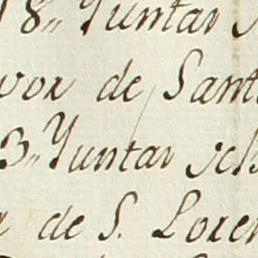 18,, Juntar
vor de Sant
3,, Juntar
de S. Loren